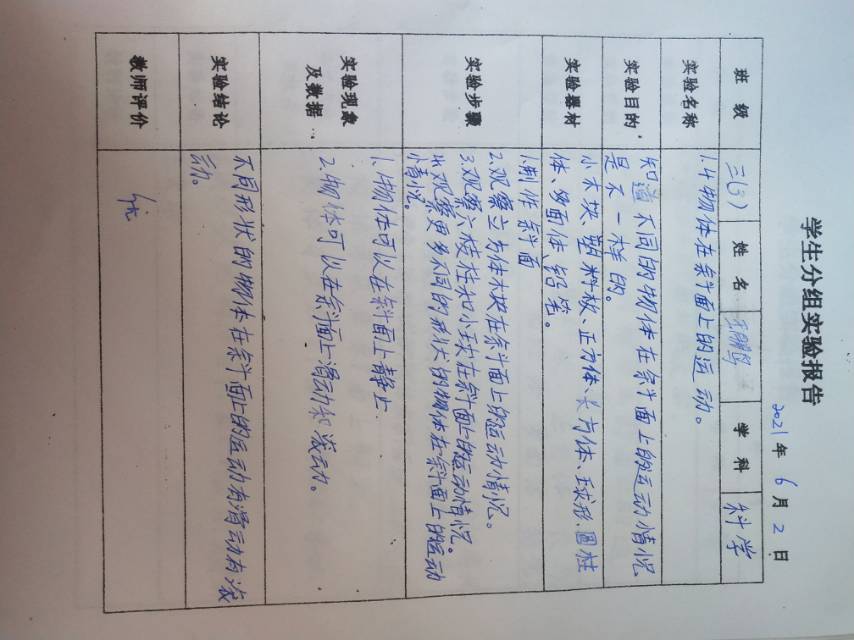 学生分组实验报告
2021年6月2日
班级 三(3) 姓名 学科 科学
实验名称 1.4物体在斜面上的运动。
实验目的 知道不同的物体在斜面上的运动情况
是不一样的。
实验器材 小木块、塑料板、正方体长方体、球形、圆柱
体、多面体、铅笔。
实验步骤 1.制作斜面
2.观察立方体木块在斜面上的运动情况。
3.观察六棱柱和小球在斜面上的运动情况。
4.观察更多不同的形状的物体在斜面上的运动
情况。
实验现象
及数据
1.物体可以在斜面上静止.
2.物体可以在斜面上滑动和滚动。
实验结论 不同形状的物体在斜面上的运动有滑动有滚
动。
教师评价 优